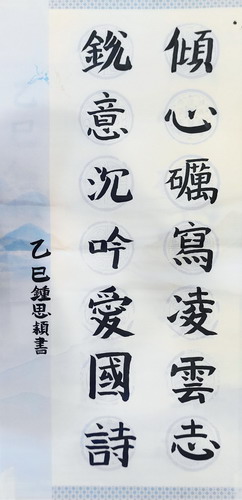 傾心礪寫凌雲志
銳意沉吟愛國詩
乙巳鍾思潁書